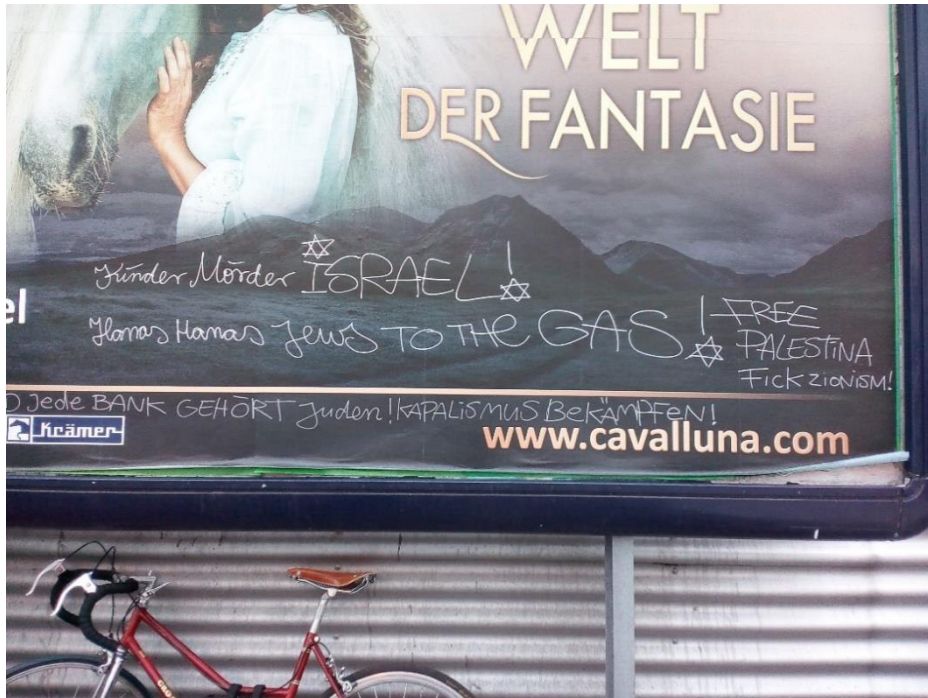 WELT
DER FANTASIE
Kinder Mörder ISRAEL!
el
Hamas Hamas Jews TO THE GAS!
FREE
PALESTINA
Fick zionism!
Jede BANK GEHÖRT Juden! KAPALISMUS BEKÄMPFEN!
Krämer
www.cavalluna.com